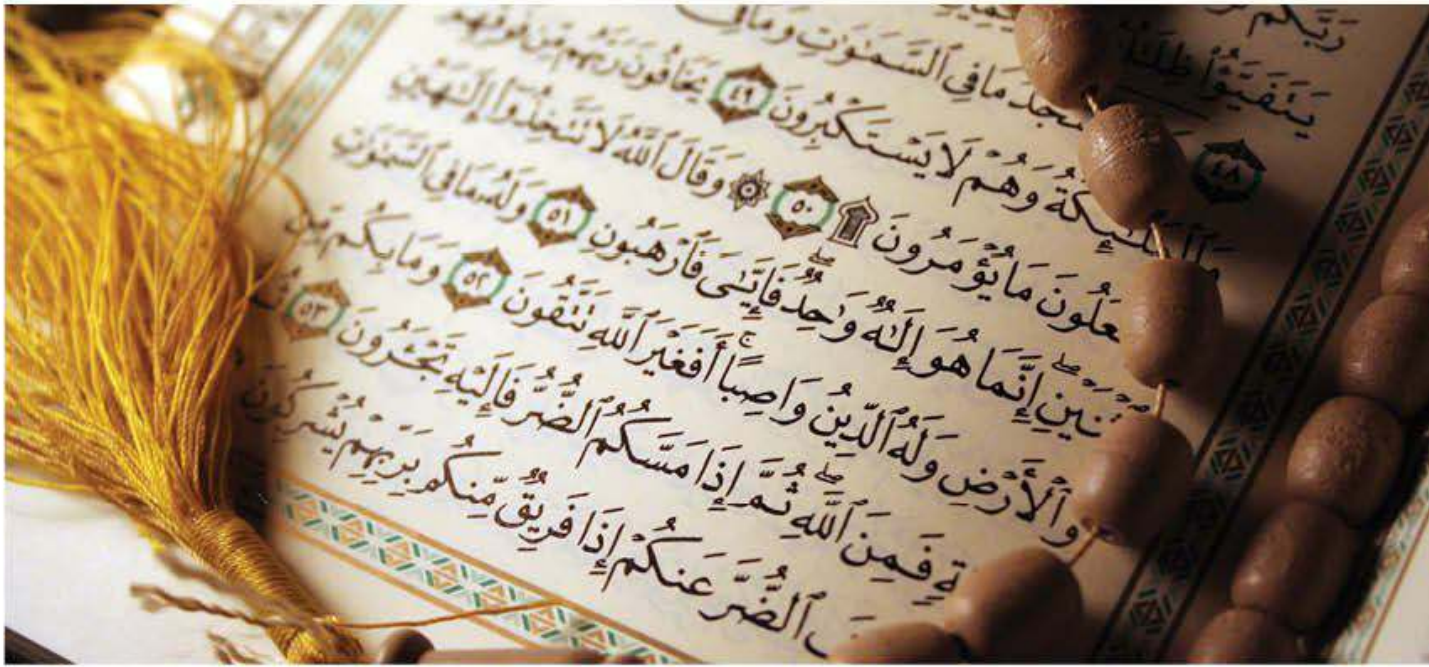 رَبَّكُمْ
يَتَفَيَّؤُا۟ ظِلَٰلُهُۥ
٤٨ مَا فِى ٱلسَّمَٰوَٰتِ وَمَا فِى
وَٱلْمَلَٰٓئِكَةُ وَهُمْ لَا يَسْتَكْبِرُونَ ٤٩ يَخَافُونَ رَبَّهُم مِّن فَوْقِهِمْ
مَا يُؤْمَرُونَ ۩ ٥٠ ۞ وَقَالَ ٱللَّهُ لَا تَتَّخِذُوٓا۟ إِلَٰهَيْنِ
إِنَّمَا هُوَ إِلَٰهٌ وَٰحِدٌ ۖ فَإِيَّٰىَ فَٱرْهَبُونِ ٥١ وَلَهُۥ مَا فِى ٱلسَّمَٰوَٰتِ
وَٱلْأَرْضِ وَلَهُ ٱلدِّينُ وَاصِبًا ۚ أَفَغَيْرَ ٱللَّهِ تَتَّقُونَ ٥٢ وَمَا بِكُم مِّن
فَمِنَ ٱللَّهِ ۖ ثُمَّ إِذَا مَسَّكُمُ ٱلضُّرُّ فَإِلَيْهِ تَجْـَٔرُونَ ٥٣
ٱلضُّرَّ عَنكُمْ إِذَا فَرِيقٌ مِّنكُم بِرَبِّهِمْ يُشْرِكُونَ